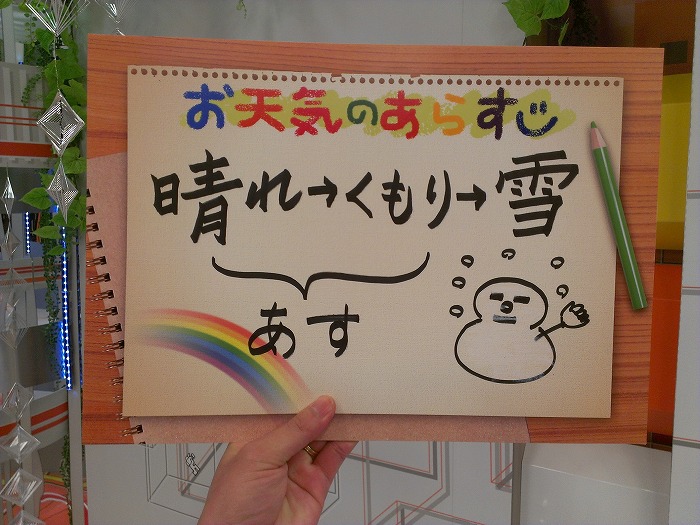 お天気のあらすじ
晴れ→くもり→雪
あす